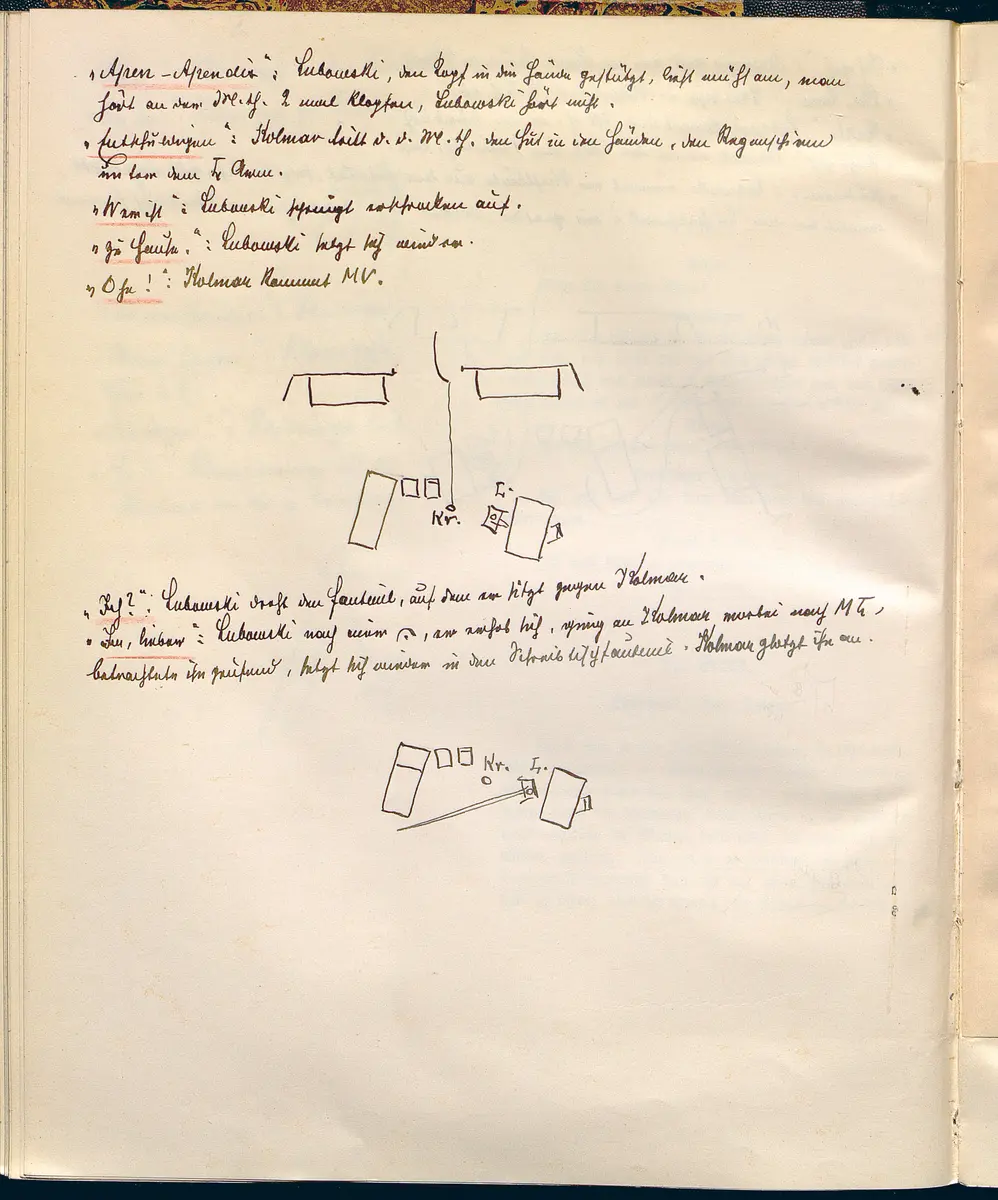 "Apen-Apendix": Lubowski, den Kopf in die Hände gestützt, liest mühsam, man
hört an der M.th. 2 mal klopfen, Lubowski hört nicht.
"Entschuldigen": Kolmar tritt d. d. M.th. den Hut in den Händen, den Regenschirm
unter dem L Arm.
"Wer ist": Lubowski springt erschrocken auf.
"zu Hause.": Lubowski setzt sich wieder.
"Oha!": Kolmar kommt MV.
L.
Kr.
"Ich?": Lubowski dreht den Fauteuil, auf dem er sitzt gegen Kolmar.
"Ja, lieber": Lubowski nach einer ⌢, er erhob sich, ging an Kolmar vorbei nach ML,
betrachtete ihn prüfend, setzt sich wieder in den Schreibtischfauteuil. Kolmar glotzt ihn an.
Kr. L.